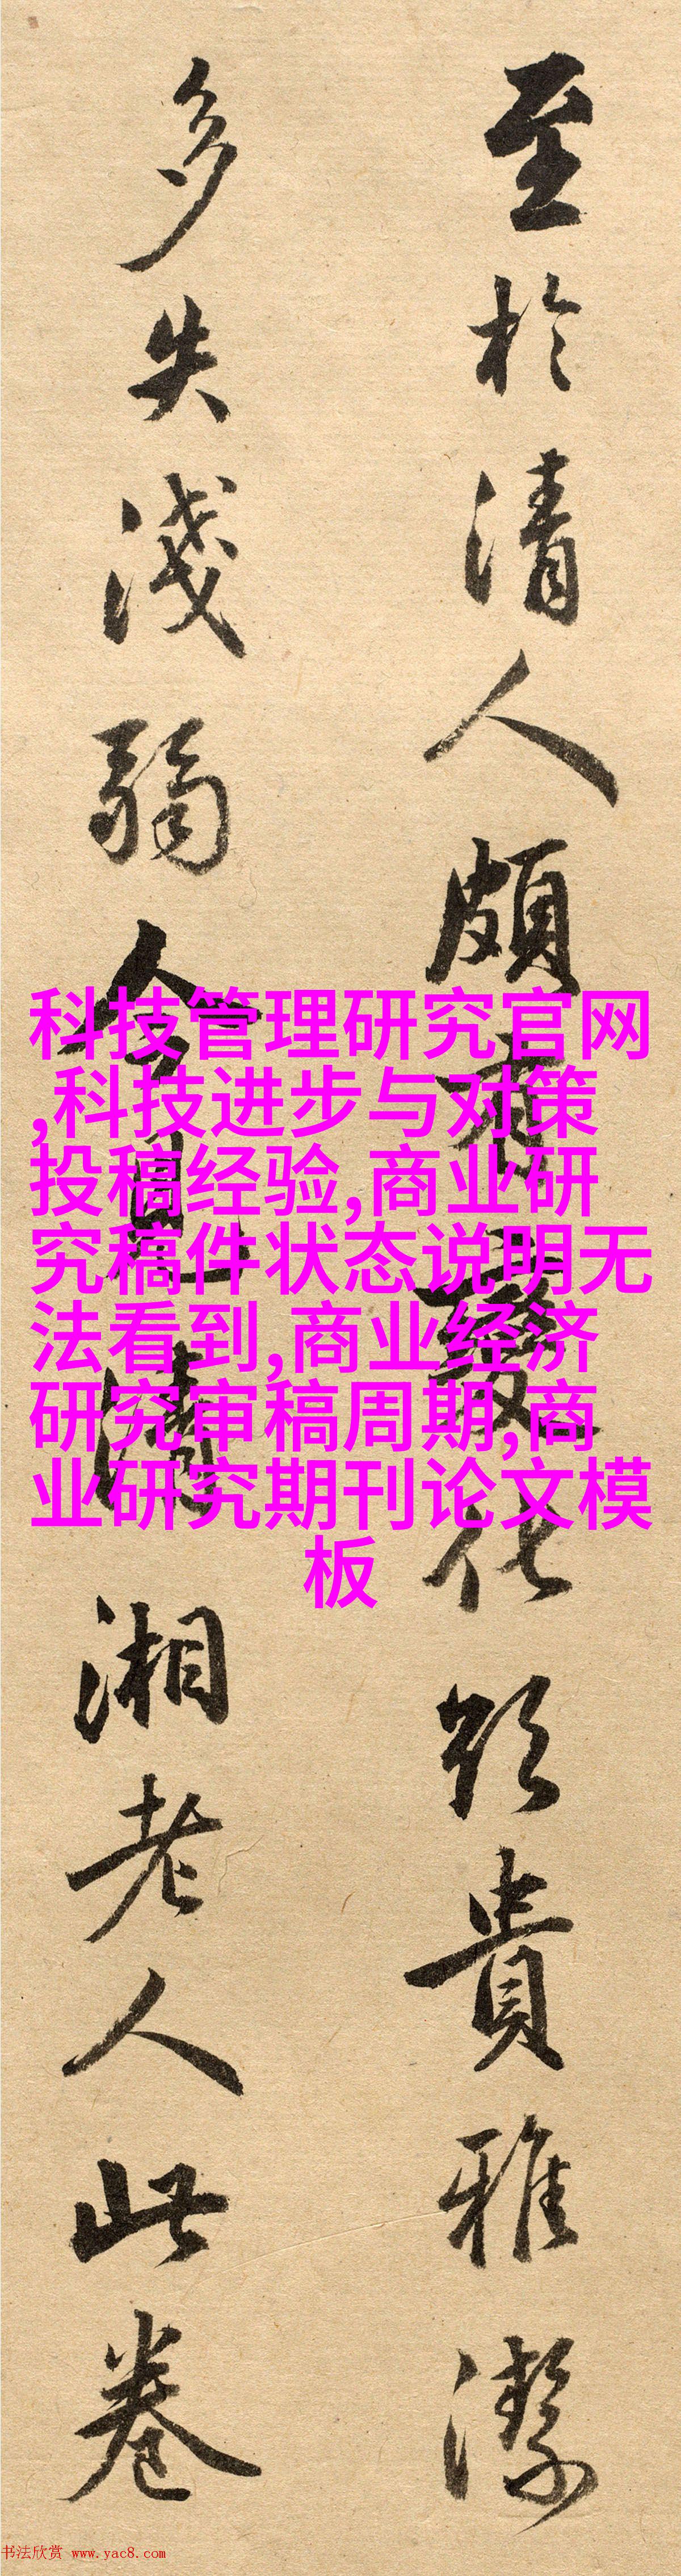 至於清人頗有變化頌貴雅潔
多失淺弱今見清湘老人此卷
科技管理研究官网
,科技进步与对策
投稿经验,商业研
究稿件状态说明无
法看到,商业经济
研究审稿周期,商
业研究期刊论文模
板
书法欣赏 www.yac8.com